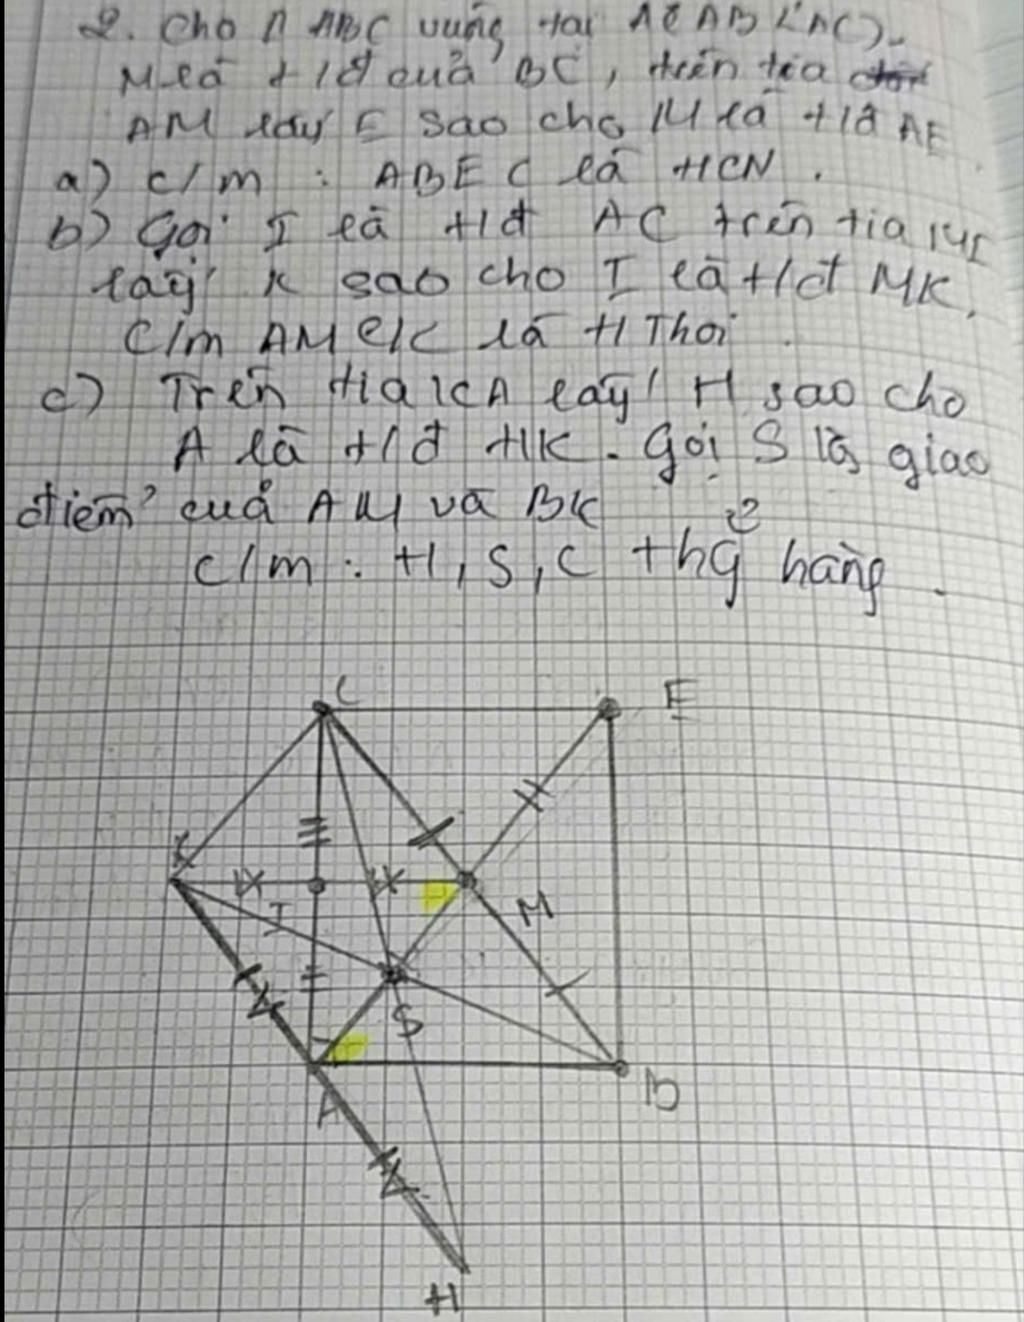 2. Cho Δ ABC vuông tại A (AB < AC).
M là t/đ của BC, trên tia
AM lấy E sao cho M là t/đ AE.
a) c/m : ABEC là HCN.
b) Gọi I là t/đ AC trên tia MI
lấy K sao cho I là t/đ MK.
C/m AMCK là H Thoi.
c) Trên tia KA lấy H sao cho
A là t/đ HK. Gọi S là giao
điểm của AM và BK
c/m : H, S, C thẳng hàng.
C
E
K
I
M
S
A
B
H